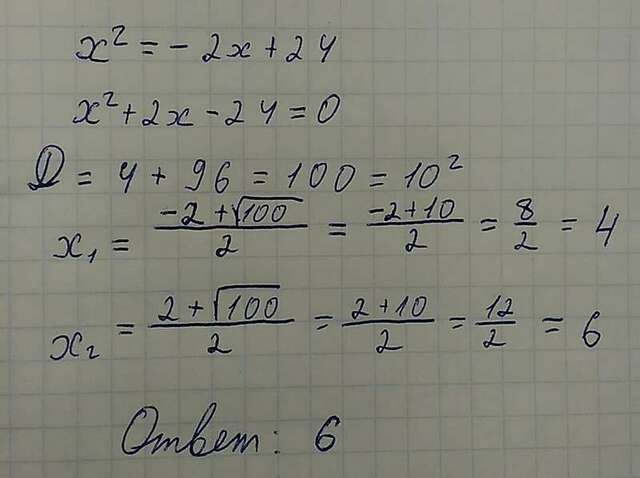 x² = - 2x + 24
x² + 2x - 24 = 0
D = 4 + 96 = 100 = 10²
x₁ = (-2 + √100)/2 = (-2 + 10)/2 = 8/2 = 4
x₂ = (2 + √100)/2 = (2 + 10)/2 = 12/2 = 6
Ответ: 6